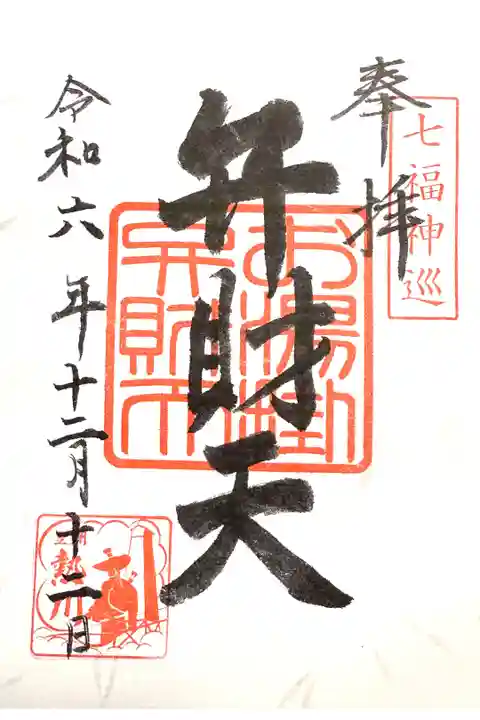 奉拝
七福神巡
弁財天
お湯掛
弁財天
令和六年十二月十二日
熱川